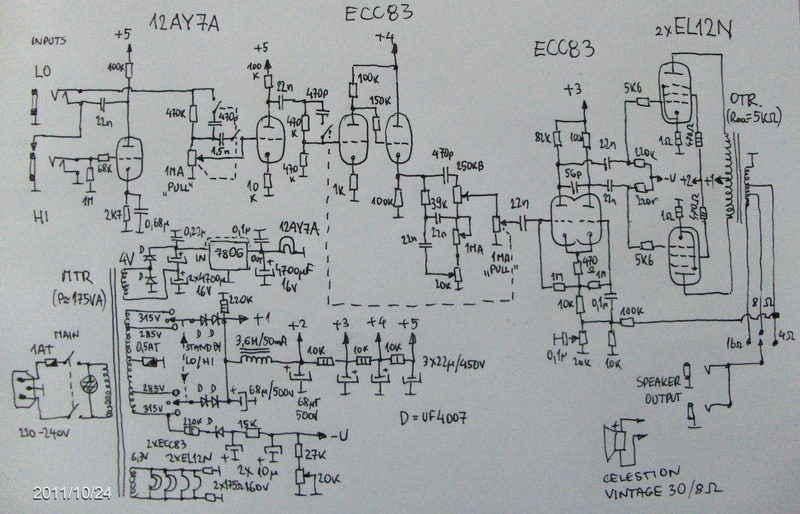 12AY7A
ECC83
ECC83
2xEL12N
INPUTS
LO
HI
+5
100k
22n
68K
1M
2K7
0,68µ
470K
470p
1,5n
1MA
"PULL"
+5
100
K
22n
470p
470
K
470
K
10
K
+4
100K
150K
1K
100K
470p
250KB
39K
22n
22n
1MA
20K
1MA
"PULL"
22n
+3
82K
100K
56p
22n
22n
470
1M
1M
10K
0,1µ
0,1µ
20K
10K
100K
5K6
5K6
1Ω
1Ω
220K
220K
-U
+2
+1
OTR.
(Raa=5KΩ)
16Ω
8Ω
4Ω
SPEAKER
OUTPUT
CELESTION
VINTAGE 30/8Ω
MTR
(P≈175VA)
MAIN
1AT
220-240V
4V
D
D
0,22µ
2x4700µ
16V
IN
7806
OUT
0,1µ
4700µF
16V
12AY7A
315V
285V
0,5AT
285V
315V
D D
STANDBY
LO/HI
D D
220K
+1
3,6H/50mA
+2
10K
+3
10K
+4
10K
+5
68µ/500V
68µF
500V
3x22µ/450V
D=UF4007
220K
D
15K
-U
2x10µ
160V
27K
20K
6,3V
2xECC83
2xEL12N
2x175Ω
2011/10/24